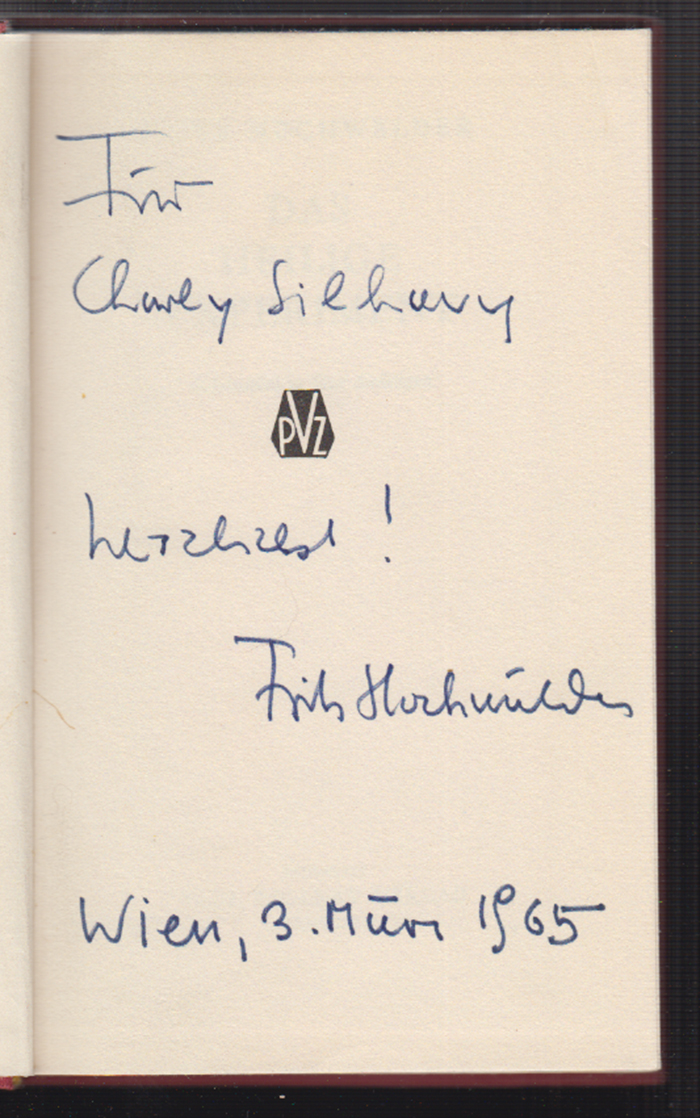 Für
Charly Silhavy
PVZ
herzlichst !
Fritz Hochwälder
Wien, 3. März 1965